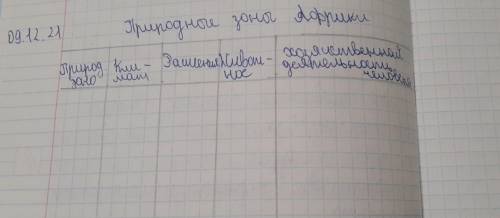 09.12.21
Природные зоны Африки
Природ зоно
Кли-мат
Животн-ное
хозяственной деятельности человека